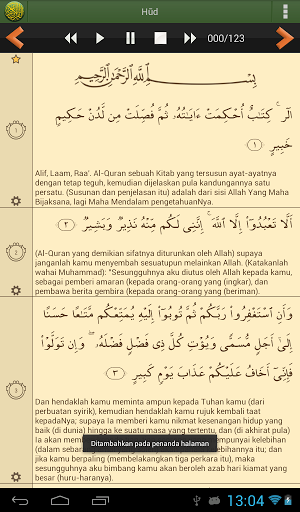 Hūd
000/123
بِسْمِ اللَّهِ الرَّحْمَٰنِ الرَّحِيمِ
الٓر ۚ كِتَٰبٌ أُحْكِمَتْ ءَايَٰتُهُۥ ثُمَّ فُصِّلَتْ مِن لَّدُنْ حَكِيمٍ
خَبِيرٍ ١
1
Alif, Laam, Raa'. Al-Quran sebuah Kitab yang tersusun ayat-ayatnya
dengan tetap teguh, kemudian dijelaskan pula kandungannya satu
persatu. (Susunan dan penjelasan itu) adalah dari sisi Allah Yang Maha
Bijaksana, lagi Maha Mendalam pengetahuanNya.
أَلَّا تَعْبُدُوٓا۟ إِلَّا ٱللَّهَ ۚ إِنَّنِى لَكُم مِّنْهُ نَذِيرٌ وَبَشِيرٌ ٢
2
(Al-Quran yang demikian sifatnya diturunkan oleh Allah) supaya
janganlah kamu menyembah sesuatupun melainkan Allah. (Katakanlah
wahai Muhammad): "Sesungguhnya aku diutus oleh Allah kepada kamu,
sebagai pemberi amaran (kepada orang-orang yang (ingkar), dan
pembawa berita gembira (kepada orang-orang yang (beriman).
وَأَنِ ٱسْتَغْفِرُوا۟ رَبَّكُمْ ثُمَّ تُوبُوٓا۟ إِلَيْهِ يُمَتِّعْكُم مَّتَٰعًا حَسَنًا
إِلَىٰٓ أَجَلٍ مُّسَمًّى وَيُؤْتِ كُلَّ ذِى فَضْلٍ فَضْلَهُۥ ۖ وَإِن تَوَلَّوْا۟
فَإِنِّىٓ أَخَافُ عَلَيْكُمْ عَذَابَ يَوْمٍ كَبِيرٍ ٣
3
Dan hendaklah kamu meminta ampun kepada Tuhan kamu (dari
perbuatan syirik), kemudian hendaklah kamu rujuk kembali taat
kepadaNya; supaya Ia memberi kamu nikmat kesenangan hidup yang
baik (di dunia) hingga ke suatu masa yang tertentu, dan (di akhirat pula)
Ia akan memb mempunyai kelebihan
(dalam sebarang lebihannya itu; dan
jika kamu berpaling (membelakangkan tiga perkara itu), maka
sesungguhnya aku bimbang kamu akan beroleh azab hari kiamat yang
besar (huru-haranya).
Ditambahkan pada penanda halaman
13:04